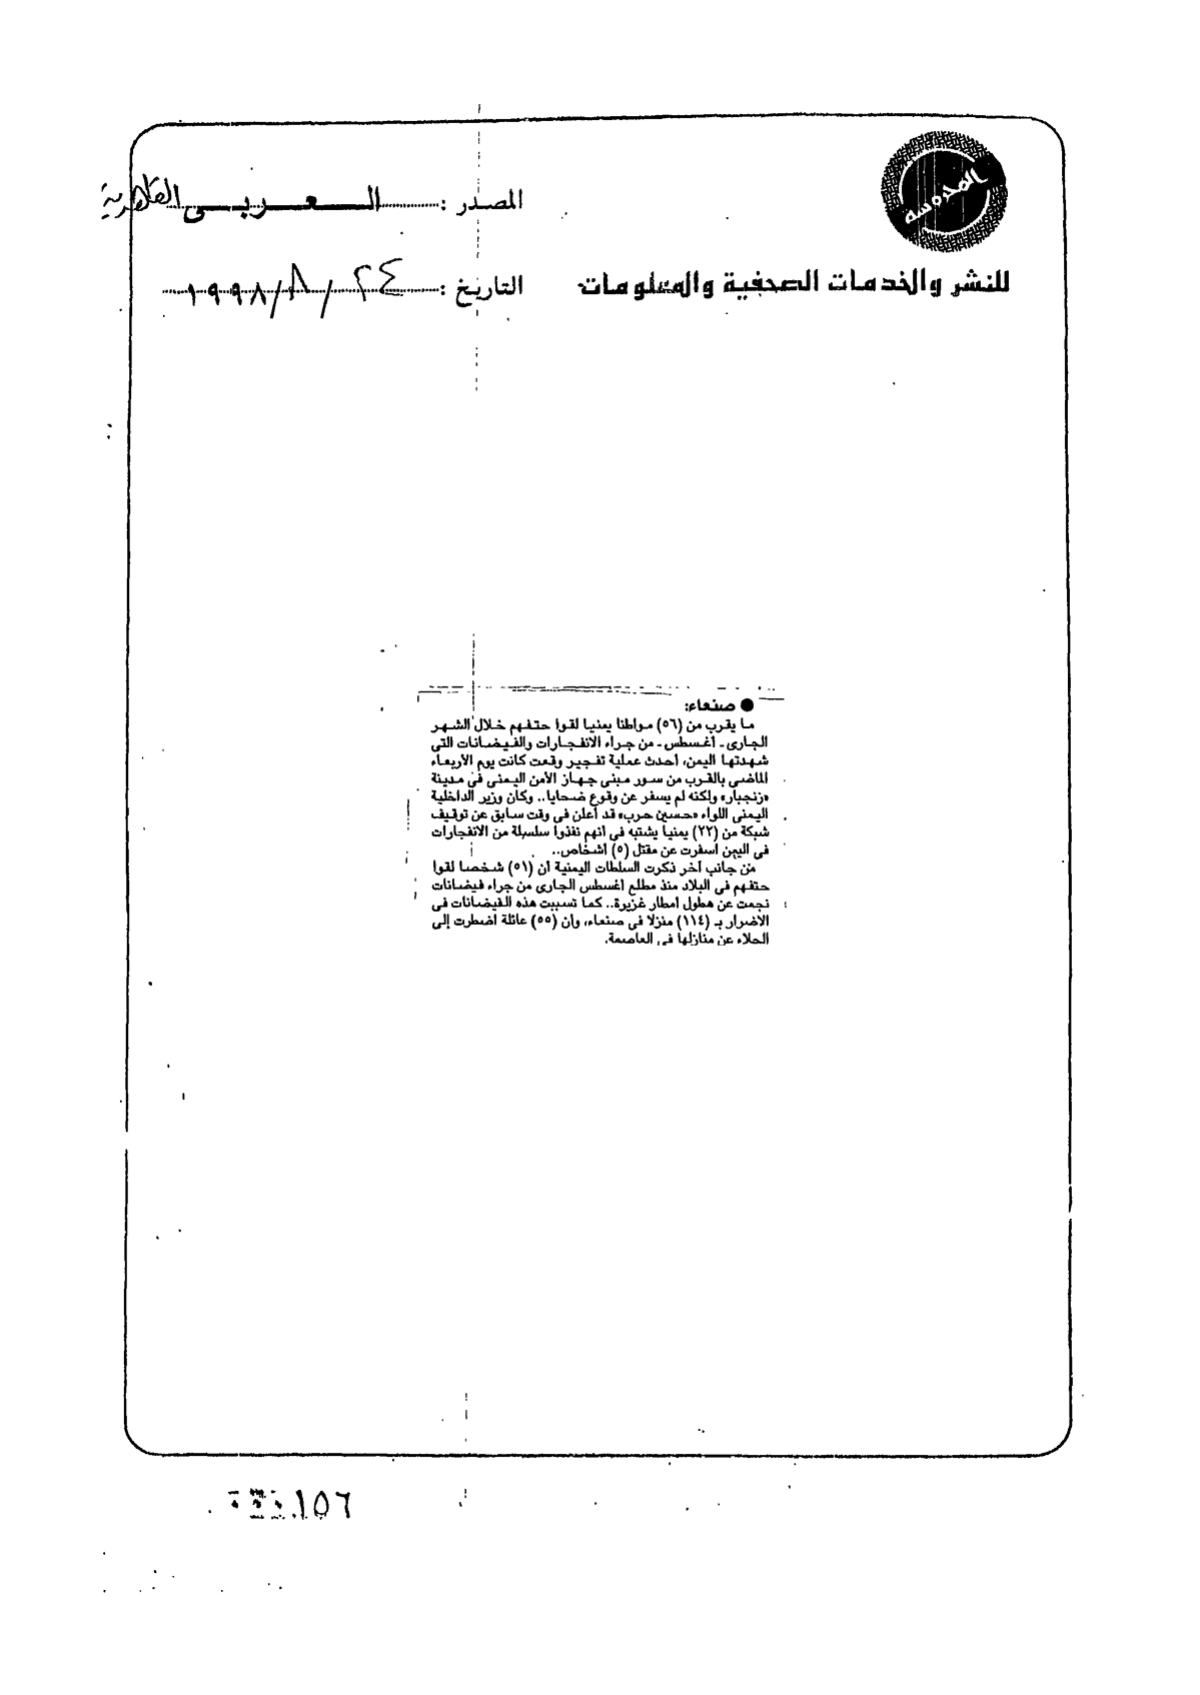 المحروسة
للنشر والخدمات الصحفية والمعلومات
المصدر : العربى القاهرية
التاريخ : ٢٤ / ٨ / ١٩٩٨
● صنعاء:
ما يقرب من (٥٦) مواطنا يمنيا لقوا حتفهم خلال الشهر
الجارى - أغسطس - من جراء الانفجارات والفيضانات التى
شهدتها اليمن، أحدث عملية تفجير وقعت كانت يوم الأربعاء
الماضى بالقرب من سور مبنى جهاز الأمن اليمنى فى مدينة
«زنجبار» ولكنه لم يسفر عن وقوع ضحايا.. وكان وزير الداخلية
اليمنى اللواء «حسين حرب» قد أعلن فى وقت سابق عن توقيف
شبكة من (٢٢) يمنيا يشتبه فى أنهم نفذوا سلسلة من الانفجارات
فى اليمن أسفرت عن مقتل (٥) أشخاص..
من جانب آخر ذكرت السلطات اليمنية أن (٥١) شخصا لقوا
حتفهم فى البلاد منذ مطلع أغسطس الجارى من جراء فيضانات
نجمت عن هطول امطار غزيرة.. كما تسببت هذه الفيضانات فى
الاضرار بـ (١١٤) منزلا فى صنعاء، وان (٥٥) عائلة اضطرت إلى
الجلاء عن منازلها فى العاصمة.
١٥٦